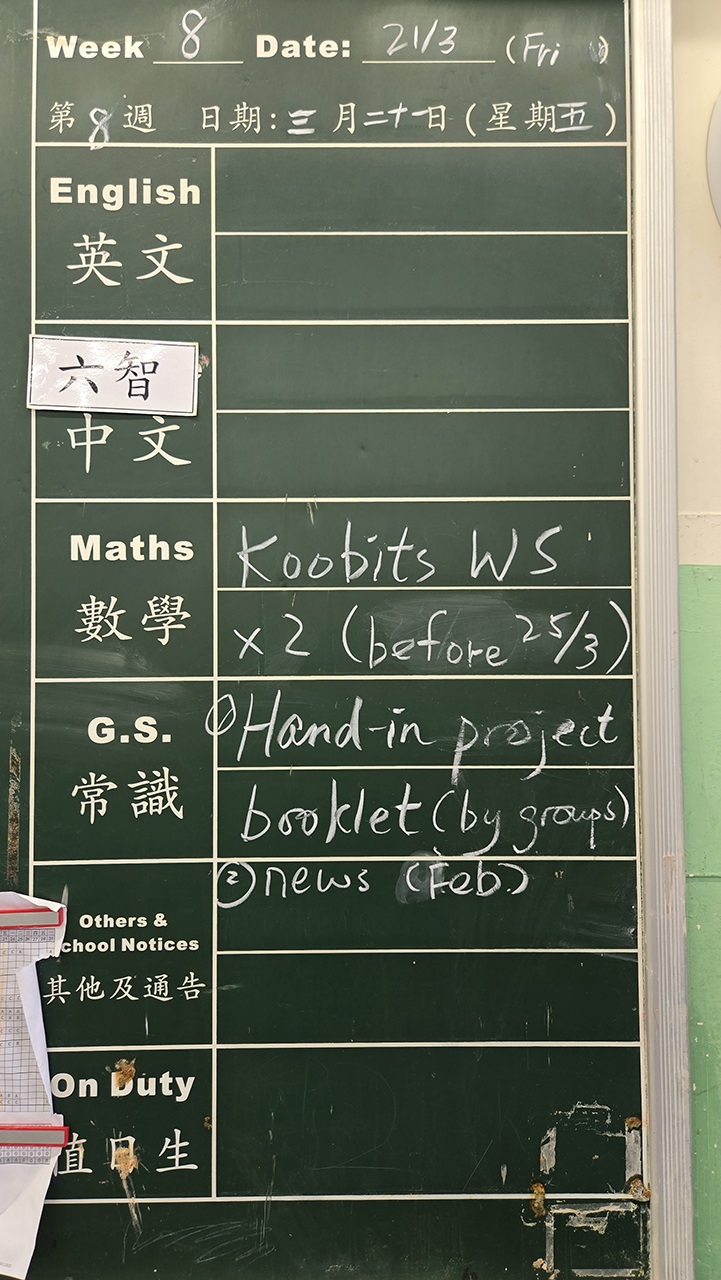 Week 8 Date: 21/3 (Fri)
第8週 日期:三月二十一日(星期五)
English
英文
六智
中文
Maths
Koobits WS
數學
x2 (before 25/3)
G.S.
①Hand-in project
常識
booklet (by groups)
②news (Feb)
Others &
chool Notices
其他及通告
On Duty
值日生